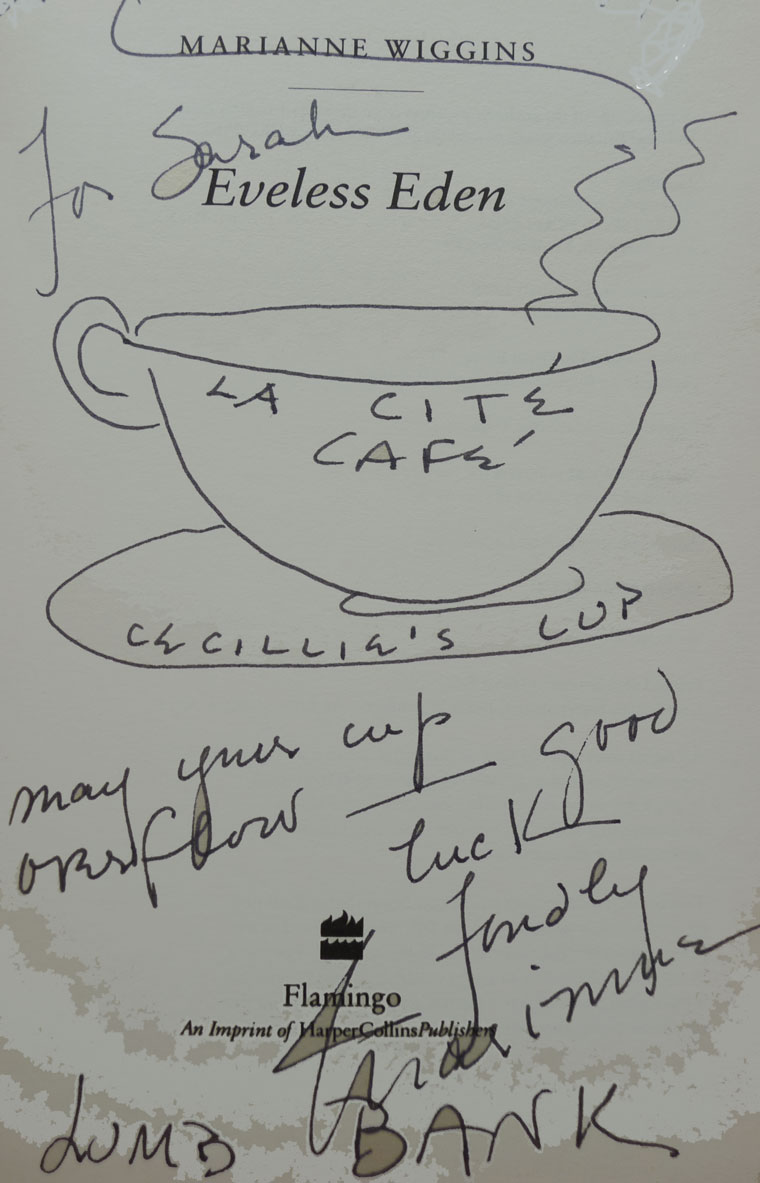 MARIANNE WIGGINS
for Sarah
Eveless Eden
LA CITÉ
CAFÉ
CECILLIE'S CUP
may your cup
overflow — good
luck
fondly
Marianne
Flamingo
An Imprint of HarperCollinsPublishers
LUMB BANK